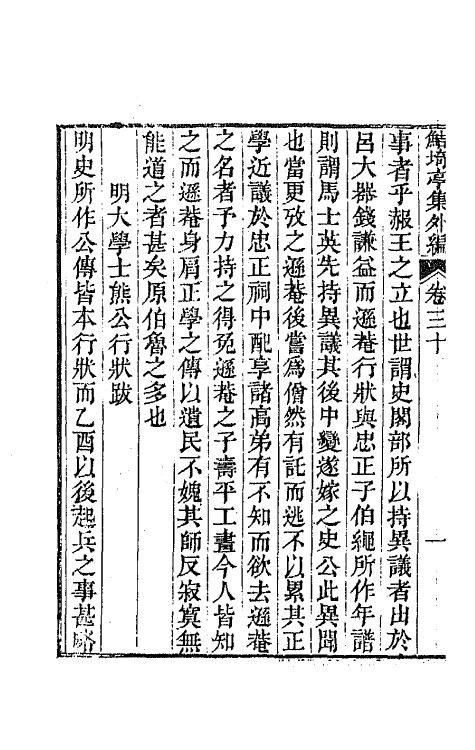 鮚埼亭集外編 卷三十 一
事者乎赧王之立也世謂史閣部所以持異議者出於
呂大器錢謙益而遜菴行狀與忠正子伯繩所作年譜
則謂馬士英先持異議其後中變遂嫁之史公此異聞
也當更攷之遜菴後嘗爲僧然有託而逃不以累其正
學近議於忠正祠中配享諸高弟有不知而欲去遜菴
之名者予力持之得免遜菴之子壽平工畫今人皆知
之而遜菴身肩正學之傳以遺民不媿其師反寂寞無
能道之者甚矣原伯魯之多也
明大學士熊公行狀跋
明史所作公傳皆本行狀而乙酉以後起兵之事甚略